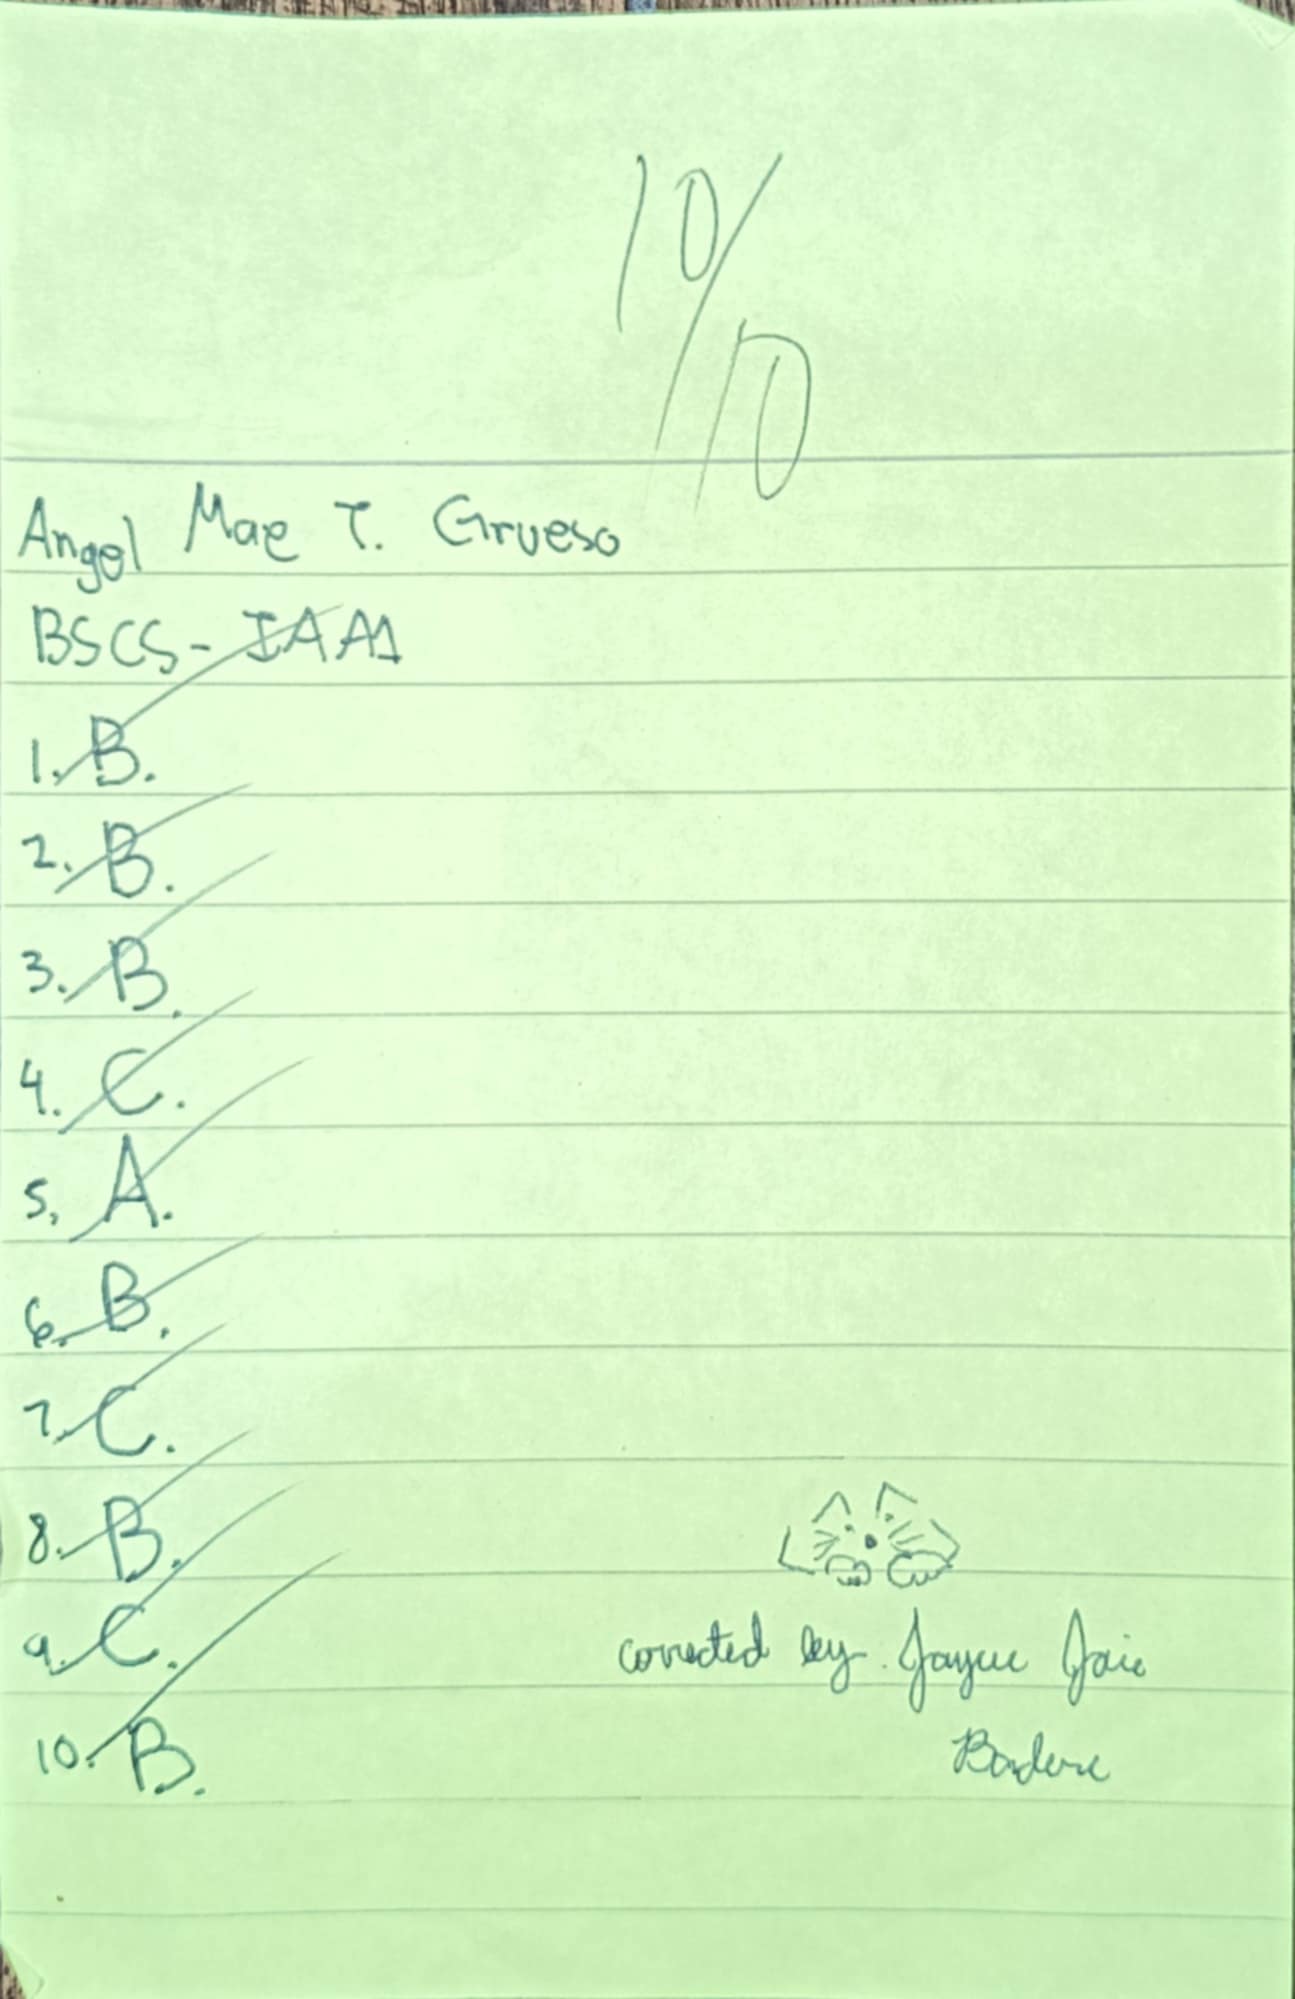 10/10
Angel Mae T. Grueso
BSCS- IAA1
1. B.
2. B.
3. B.
4. C.
5. A.
6. B.
7. C.
8. B.
9. C.
10. B.
corrected by. Jaie